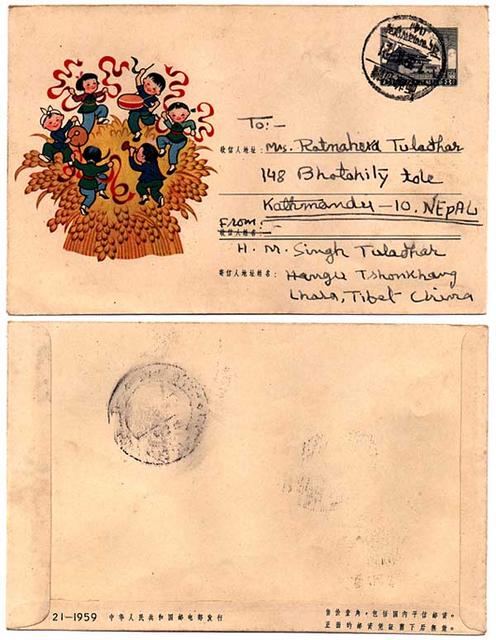 To:-
收信人地址： Mrs. Ratnahera Tuladhar
148 Bhotahity tole
Kathmandu-10. NEPAL
From:-
收信人姓名：
H. M. Singh Tuladhar
寄信人地址姓名： Hangu Tshonkhang
Lhasa, Tibet China
21-1959 中华人民共和国邮电部发行
售价壹角，包括国内平信邮资。
正面的邮资凭证剪下后无效。